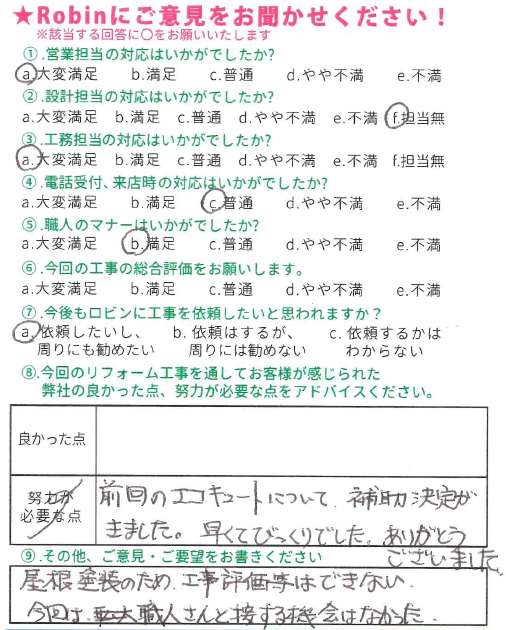 ★Robinにご意見をお聞かせください！
※該当する回答に〇をお願いいたします
①.営業担当の対応はいかがでしたか?
a.大変満足 b.満足 c.普通 d.やや不満 e.不満
②.設計担当の対応はいかがでしたか?
a.大変満足 b.満足 c.普通 d.やや不満 e.不満 f.担当無
③.工務担当の対応はいかがでしたか?
a.大変満足 b.満足 c.普通 d.やや不満 e.不満 f.担当無
④.電話受付、来店時の対応はいかがでしたか?
a.大変満足 b.満足 c.普通 d.やや不満 e.不満
⑤.職人のマナーはいかがでしたか?
a.大変満足 b.満足 c.普通 d.やや不満 e.不満
⑥.今回の工事の総合評価をお願いします。
a.大変満足 b.満足 c.普通 d.やや不満 e.不満
⑦.今後もロビンに工事を依頼したいと思われますか？
a.依頼したいし、 b. 依頼はするが、 c. 依頼するかは
周りにも勧めたい 周りには勧めない わからない
⑧.今回のリフォーム工事を通してお客様が感じられた
弊社の良かった点、努力が必要な点をアドバイスください。
良かった点
努力が
必要な点
前回のエコキュートについて、補助決定が
きました。早くてびっくりでした。ありがとう
ございました。
⑨.その他、ご意見・ご要望をお書きください
屋根塗装のため、工事評価はできない.
今回は、職人さんと接する機会はなかった.